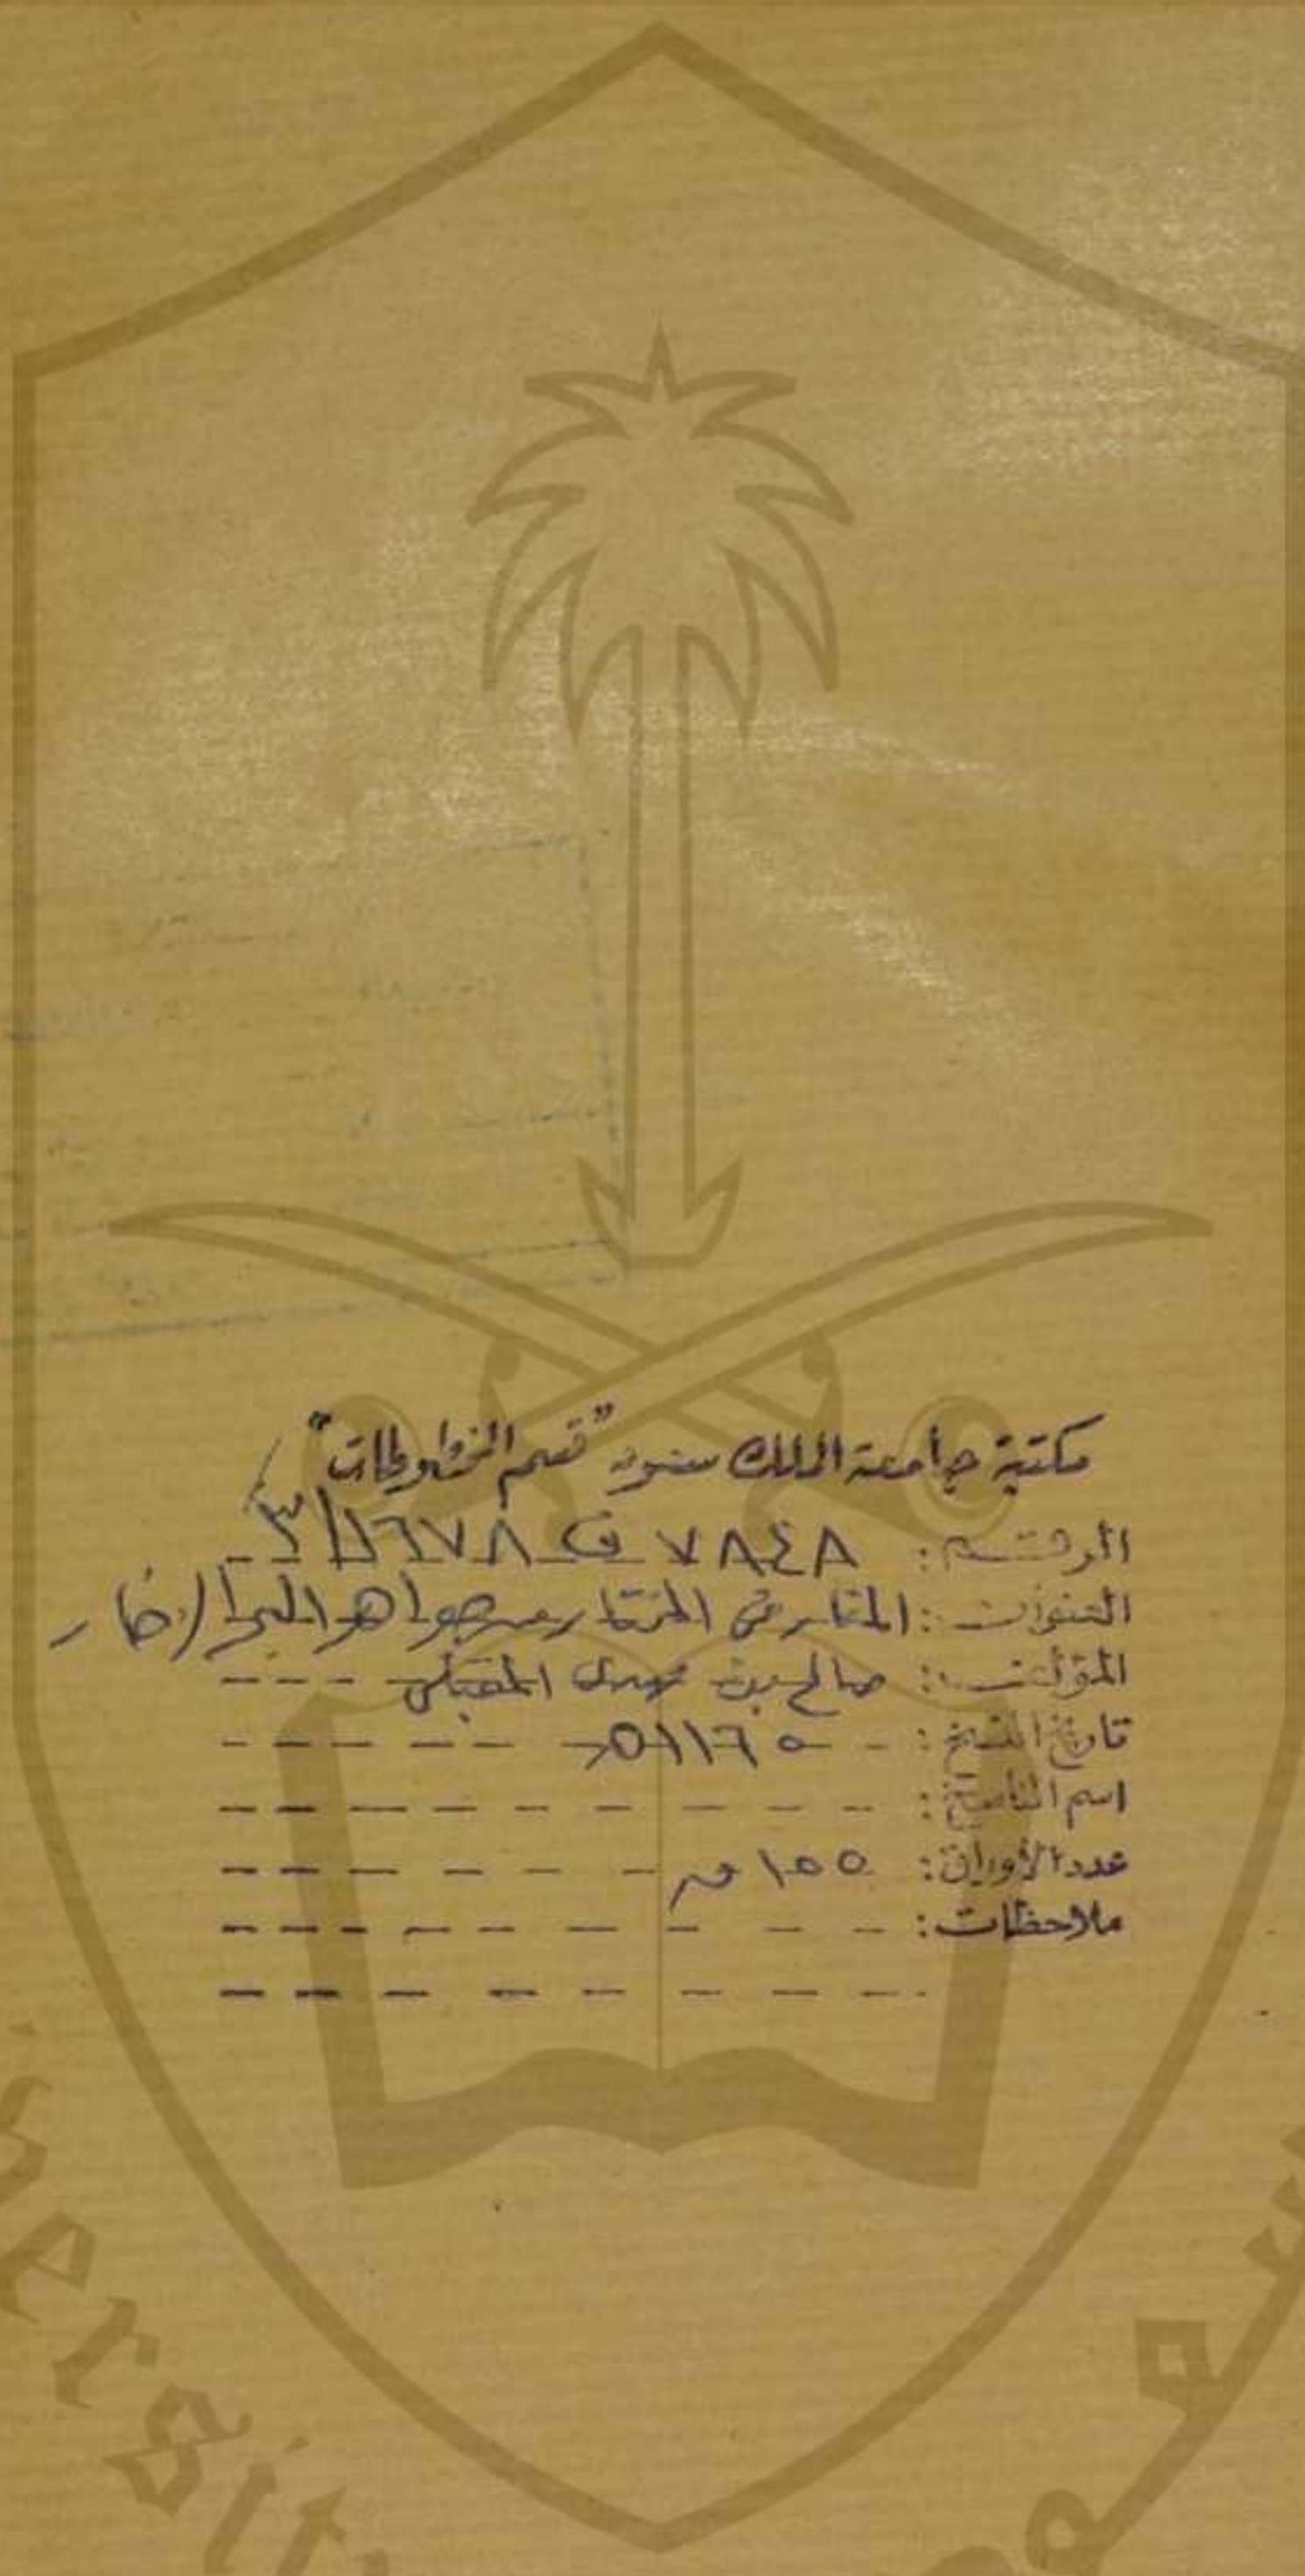 مكتبة جامعة الملك سعود "قسم المخطوطات"
الرقم: ٧٨٤٨ ف ١٦٧٨/٣
العنوان: المنار في المختار من جواهر البحر الزخار
المؤلف: صالح بن مهدى المقبلى
تاريخ النسخ: ١١٦٥هـ
اسم الناسخ:
عدد الأوراق: ١٥٥ ص
ملاحظات:
ersit